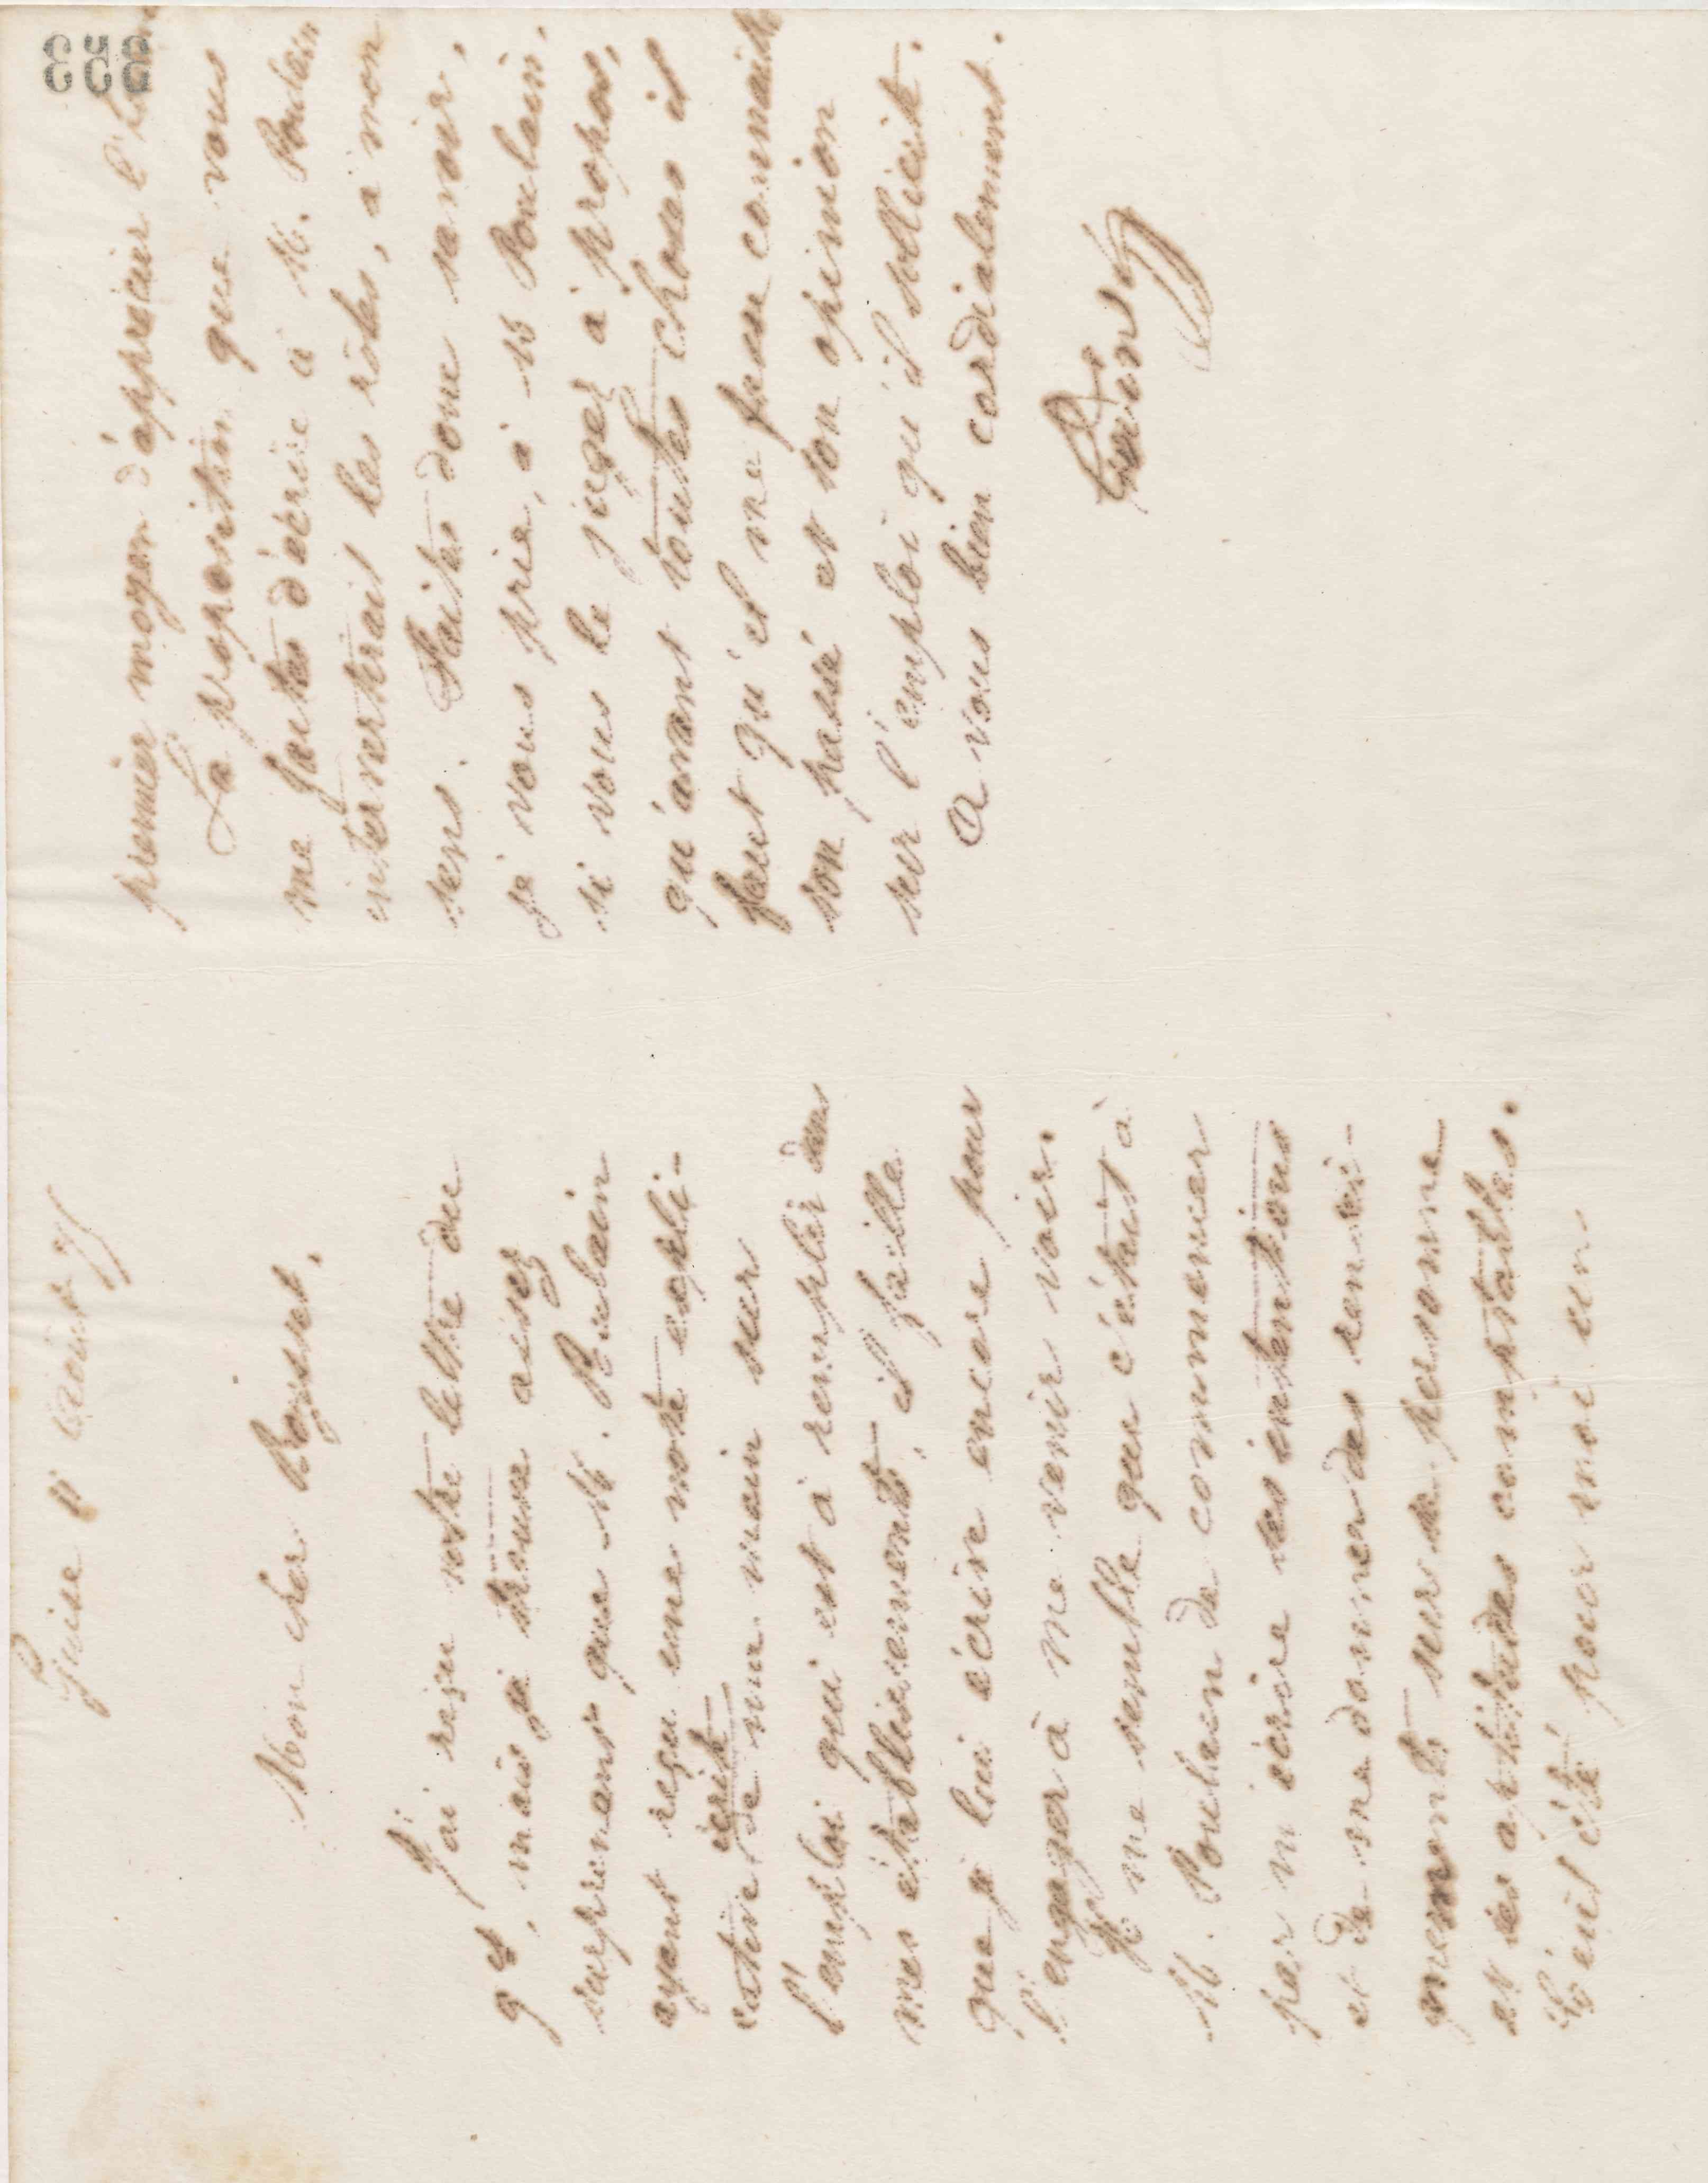 Guise 11 août 75
Mon cher Rozset,
J'ai reçu votre lettre du
9 ct, mais je trouve assez
surprenant que M. Poulain
ayant reçu une note expli-
cative écrite de ma main sur
l'emploi qui est à remplir dans
mes établissements, il faille
que je lui écrive encore pour
l'engager à me venir voir.
Il me semble que c'était à
M. Poulain de commencer
par m'écrire ses intentions
et de me donner des rensei-
gnements sur sa personne
et ses aptitudes comptables.
C'eût été pour moi un
premier moyen d'apprécier l'
La proposition que vous
me faites d'écrire à M. Poulain
intervertirait les rôles, à mon
sens. Faites donc savoir,
je vous prie, à M Poulain,
si vous le jugez à propos,
qu'avant toutes choses il
faut qu'il me fasse connaître
son passé et son opinion
sur l'emploi qu'il sollicite.
A vous bien cordialement.
Godin